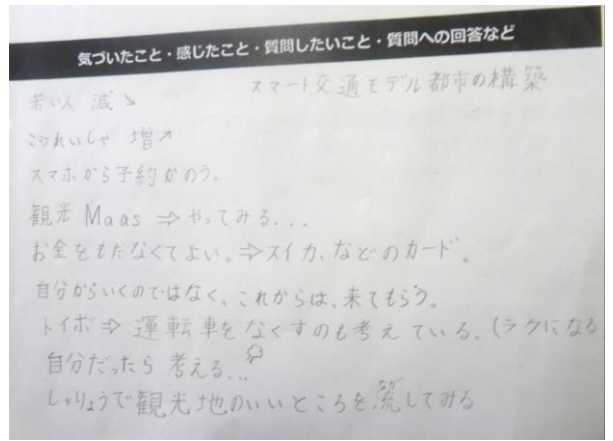 気づいたこと・感じたこと・質問したいこと・質問への回答など
スマート交通モデル都市の構築
若い人 減↘
こうれいしゃ 増↗
スマホから予約かのう。
観光 Maas ⇒ やってみる...
お金をもたなくてよい。⇒スイカ、などのカード。
自分からいくのではなく、これからは、来てもらう。
トイボ⇒ 運転車をなくすのも考えている。(ラクになる
自分だったら 考える...
しゃりょうで観光地のいいところを流してみる